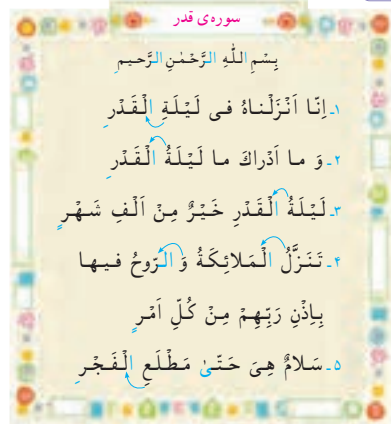 سوره‌ی قدر
بِسْمِ اللّٰهِ الرَّحْمٰنِ الرَّحیمِ
۱ـ اِنّا اَنْزَلْناهُ فی لَیْلَةِ الْقَدْرِ
۲ـ وَ ما اَدْراكَ ما لَیْلَةُ الْقَدْرِ
۳ـ لَیْلَةُ الْقَدْرِ خَیْرٌ مِنْ اَلْفِ شَهْرٍ
۴ـ تَنَزَّلُ الْمَلائِكَةُ وَ الرّوحُ فیها
بِاِذْنِ رَبِّهِمْ مِنْ كُلِّ اَمْرٍ
۵ـ سَلامٌ هِیَ حَتّیٰ مَطْلَعِ الْفَجْرِ